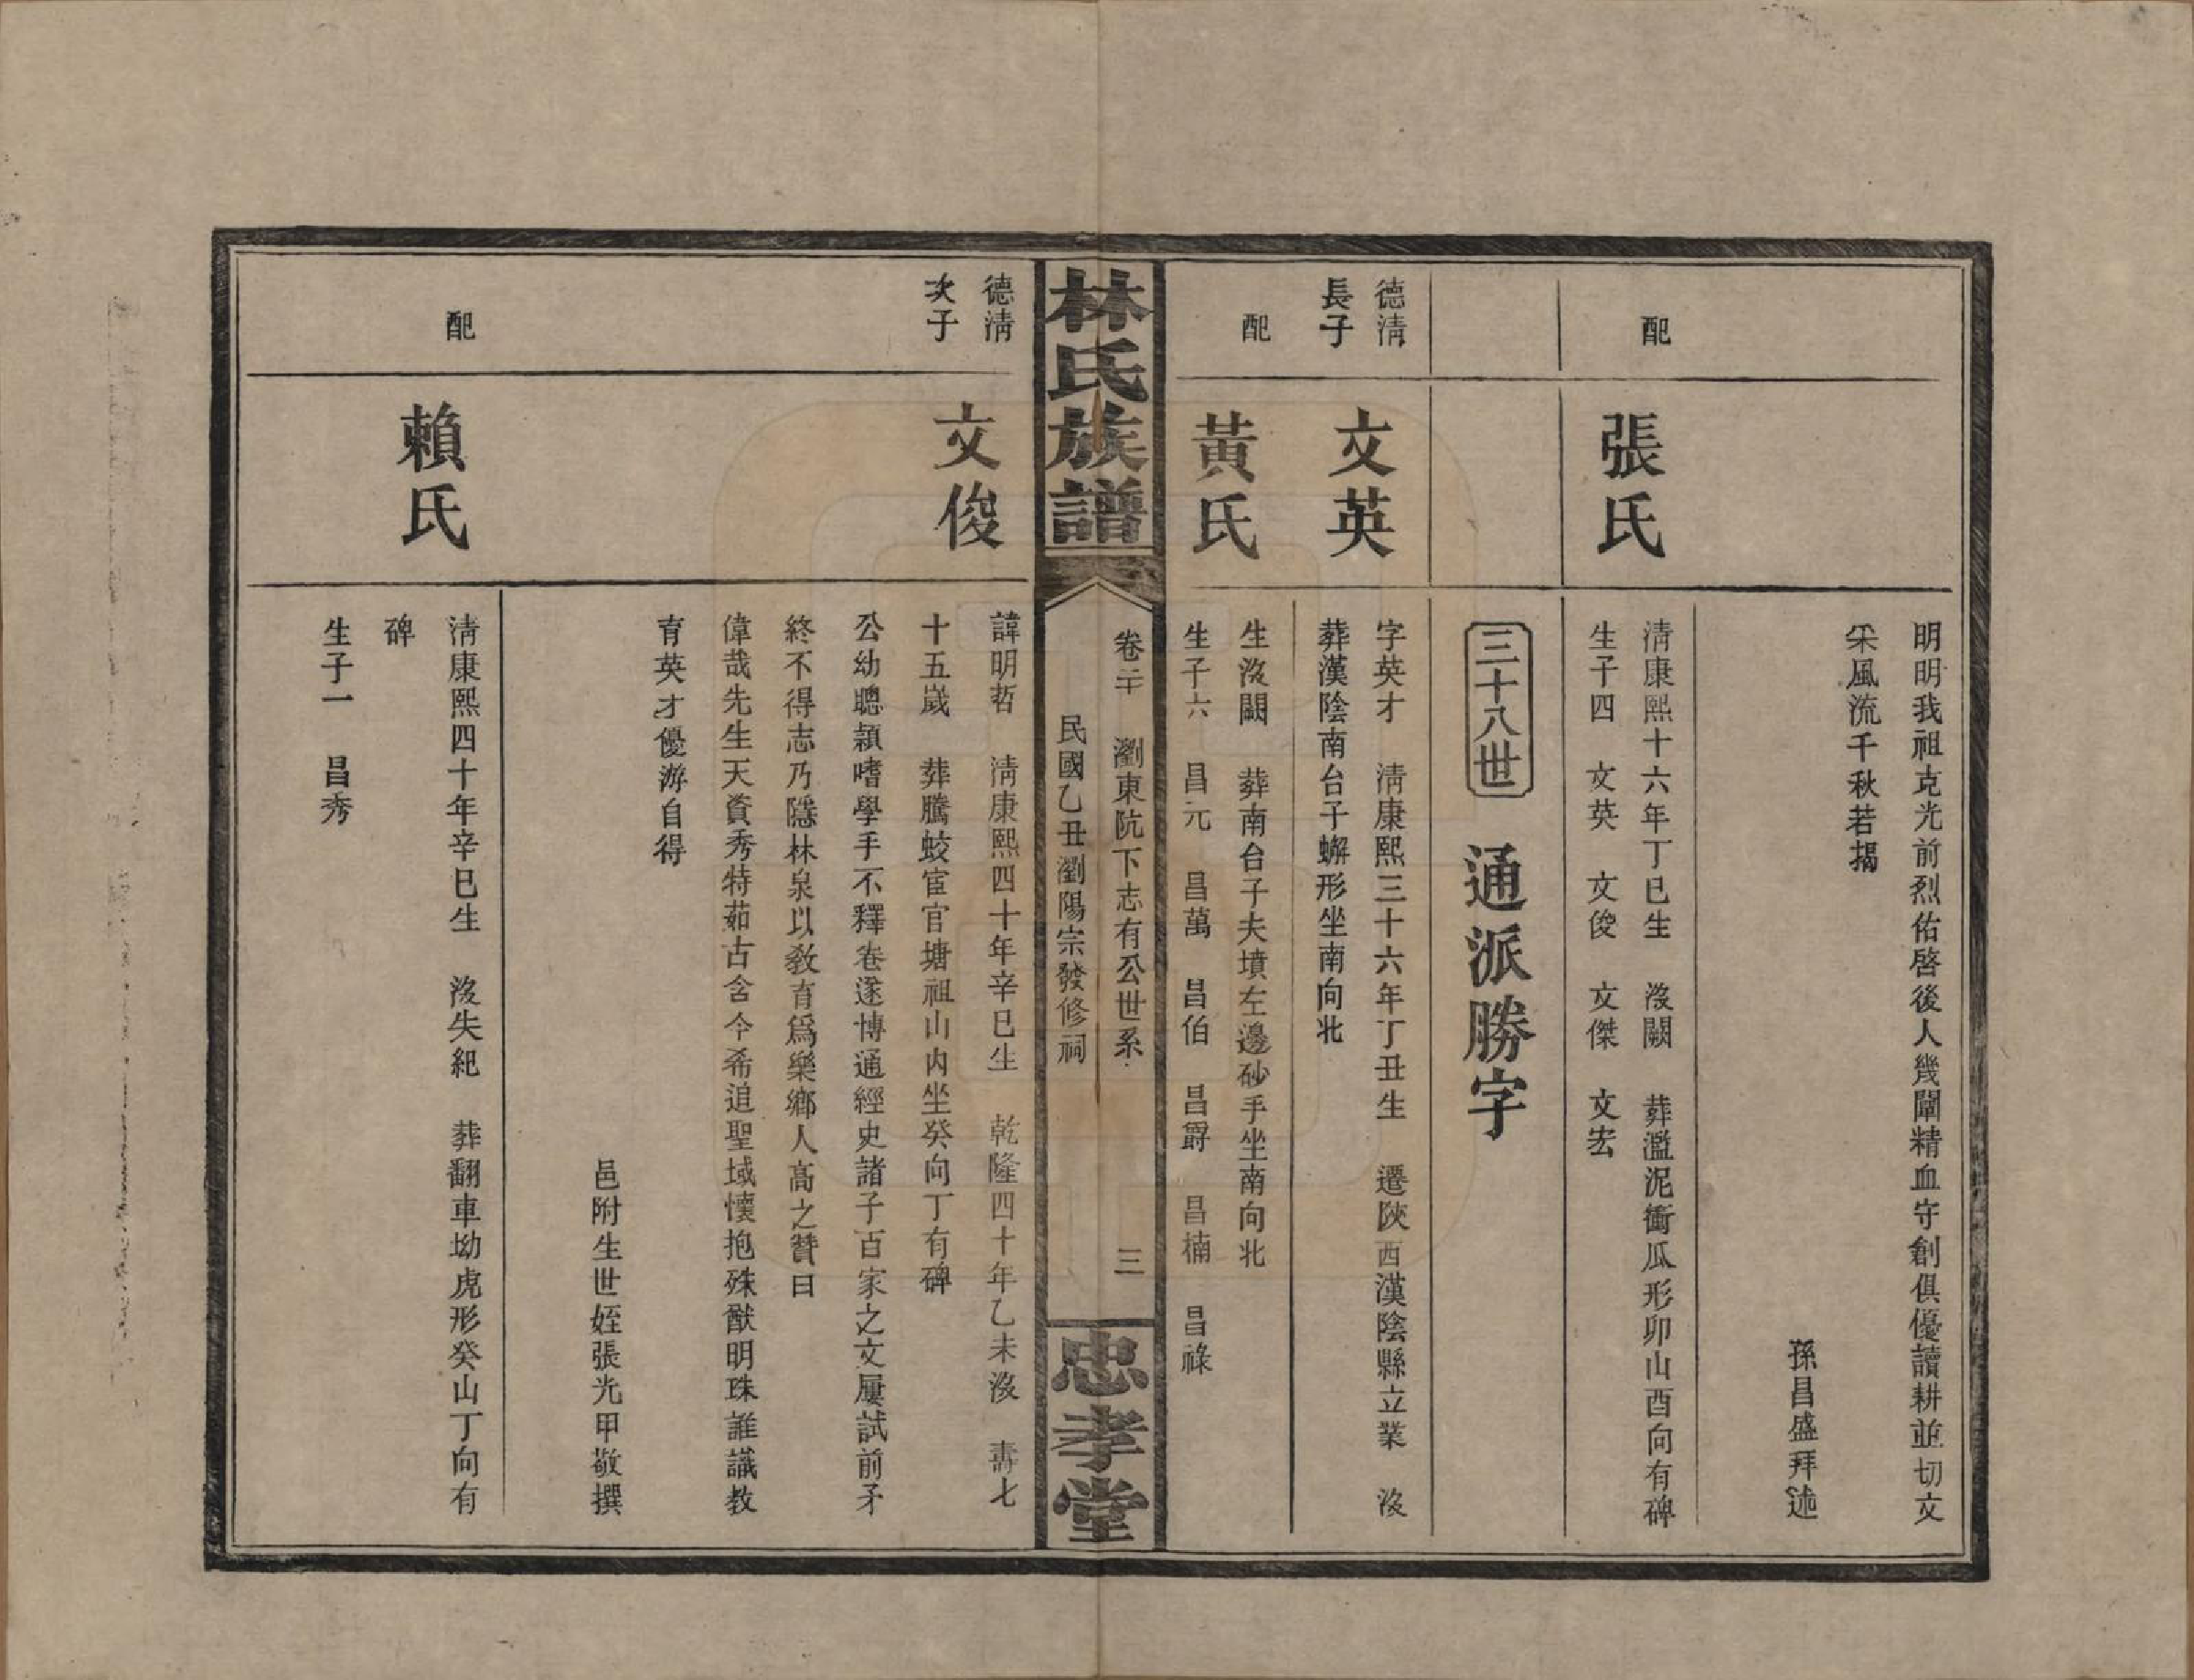 明明我祖克光前烈佑啓後人幾闡精血守創俱優讀耕並切文
采風流千秋若揭
孫昌盛拜述
配
張氏
淸康熙十六年丁巳生　沒闕　葬濫泥衝瓜形卯山酉向有碑
生子四　文英　文俊　文傑　文宏
三十八世　通派勝字
德淸
長子
文英
字英才　淸康熙三十六年丁丑生　遷陝西漢陰縣立業　沒
葬漢陰南台子蠏形坐南向北
配
黃氏
生沒闕　葬南台子夫墳左邊砂手坐南向北
生子六　昌元　昌萬　昌伯　昌爵　昌楠　昌祿
林氏族譜
卷二十　瀏東阬下志有公世系　三
民國乙丑瀏陽宗發修祠
忠孝堂
德淸
次子
文俊
諱明哲　淸康熙四十年辛巳生　乾隆四十年乙未沒　壽七
十五歲　葬騰蛟宦官塘祖山內坐癸向丁有碑
公幼聰穎嗜學手不釋卷遂博通經史諸子百家之文屢試前矛
終不得志乃隱林泉以敎育爲樂鄉人高之贊曰
偉哉先生天資秀特茹古含今希追聖域懷抱殊猷明珠誰識敎
育英才優游自得
邑附生世姪張光甲敬撰
配
賴氏
淸康熙四十年辛巳生　沒失紀　葬翻車坳虎形癸山丁向有
碑
生子一　昌秀